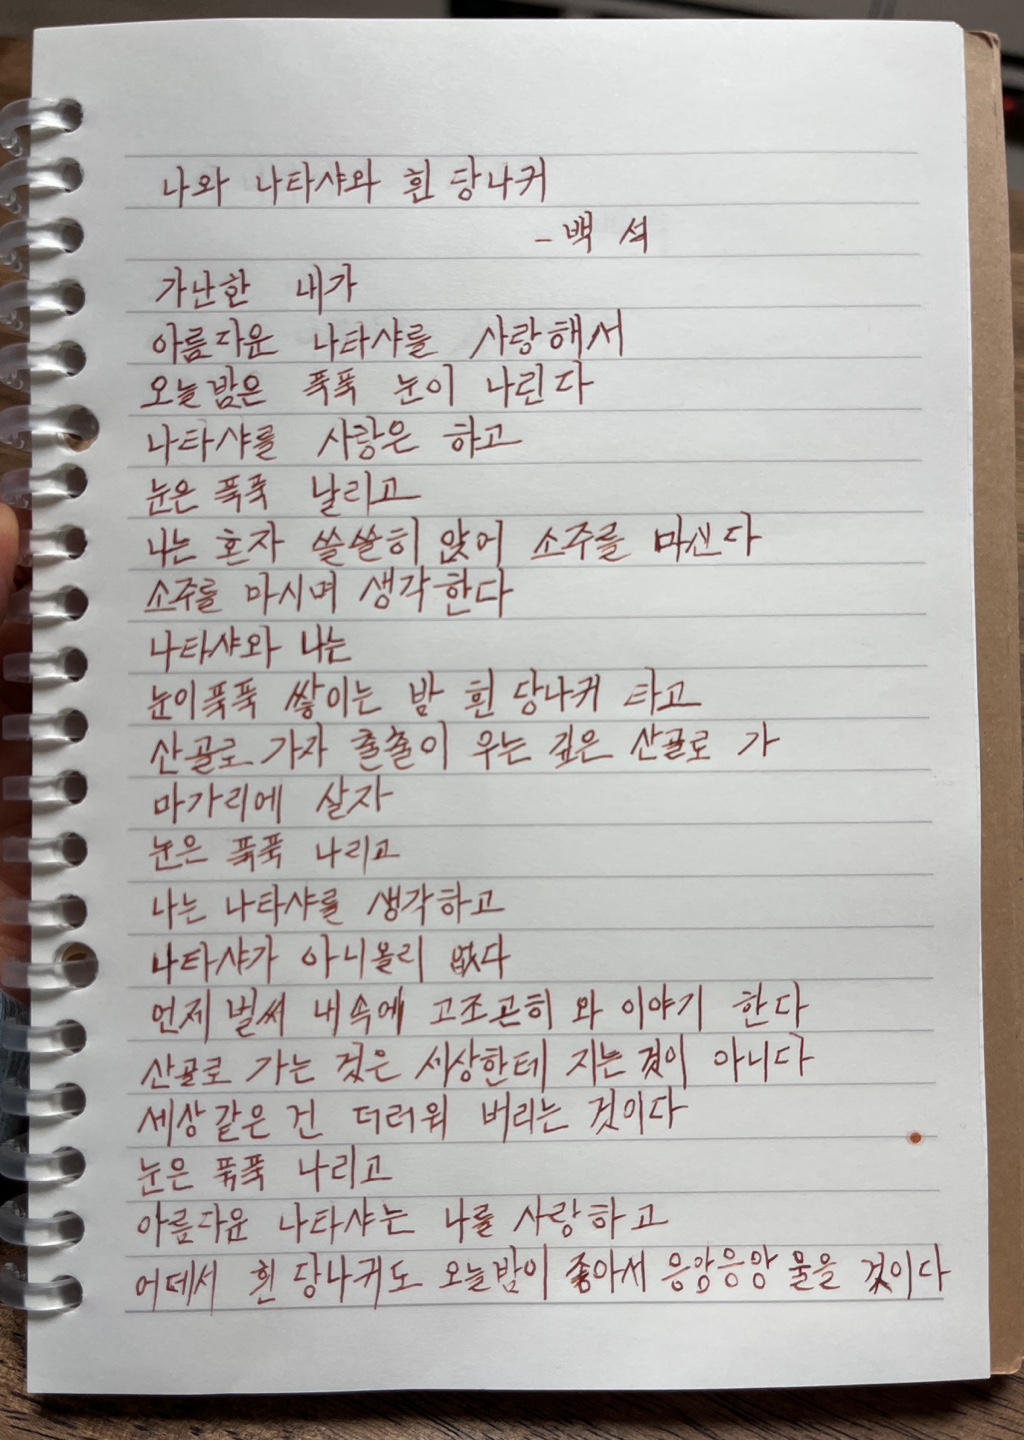 나와 나타샤와 흰 당나귀
- 백 석
가난한 내가
아름다운 나타샤를 사랑해서
오늘밤은 푹푹 눈이 나린다
나타샤를 사랑은 하고
눈은 푹푹 날리고
나는 혼자 쓸쓸히 앉어 소주를 마신다
소주를 마시며 생각한다
나타샤와 나는
눈이 푹푹 쌓이는 밤 흰 당나귀 타고
산골로 가자 출출이 우는 깊은 산골로 가
마가리에 살자
눈은 푹푹 나리고
나는 나타샤를 생각하고
나타샤가 아니올리 없다
언제 벌써 내속에 고조곤히 와 이야기 한다
산골로 가는 것은 세상한테 지는 것이 아니다
세상 같은 건 더러워 버리는 것이다
눈은 푹푹 나리고
아름다운 나타샤는 나를 사랑하고
어데서 흰 당나귀도 오늘밤이 좋아서 응앙응앙 울을 것이다